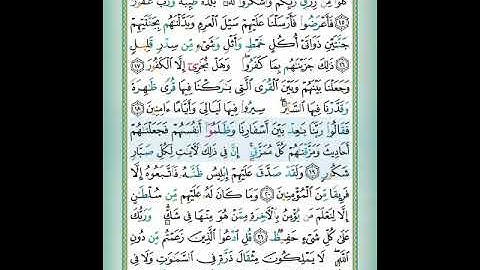 كُلُوا۟ مِن رِّزْقِ رَبِّكُمْ وَٱشْكُرُوا۟ لَهُۥ ۚ بَلْدَةٌ طَيِّبَةٌ وَرَبٌّ غَفُورٌ
١٥ فَأَعْرَضُوا۟ فَأَرْسَلْنَا عَلَيْهِمْ سَيْلَ ٱلْعَرِمِ وَبَدَّلْنَٰهُم بِجَنَّتَيْهِمْ
جَنَّتَيْنِ ذَوَاتَىْ أُكُلٍ خَمْطٍ وَأَثْلٍ وَشَىْءٍ مِّن سِدْرٍ قَلِيلٍ
١٦ ذَٰلِكَ جَزَيْنَٰهُم بِمَا كَفَرُوا۟ ۖ وَهَلْ نُجَٰزِىٓ إِلَّا ٱلْكَفُورَ ١٧
وَجَعَلْنَا بَيْنَهُمْ وَبَيْنَ ٱلْقُرَى ٱلَّتِى بَٰرَكْنَا فِيهَا قُرًى ظَٰهِرَةً
وَقَدَّرْنَا فِيهَا ٱلسَّيْرَ ۖ سِيرُوا۟ فِيهَا لَيَالِىَ وَأَيَّامًا ءَامِنِينَ ١٨
فَقَالُوا۟ رَبَّنَا بَٰعِدْ بَيْنَ أَسْفَارِنَا وَظَلَمُوٓا۟ أَنفُسَهُمْ فَجَعَلْنَٰهُمْ
أَحَادِيثَ وَمَزَّقْنَٰهُمْ كُلَّ مُمَزَّقٍ ۚ إِنَّ فِى ذَٰلِكَ لَءَايَٰتٍ لِّكُلِّ صَبَّارٍ
شَكُورٍ ١٩ وَلَقَدْ صَدَّقَ عَلَيْهِمْ إِبْلِيسُ ظَنَّهُۥ فَٱتَّبَعُوهُ إِلَّا
فَرِيقًا مِّنَ ٱلْمُؤْمِنِينَ ٢٠ وَمَا كَانَ لَهُۥ عَلَيْهِم مِّن سُلْطَٰنٍ
إِلَّا لِنَعْلَمَ مَن يُؤْمِنُ بِٱلْءَاخِرَةِ مِمَّنْ هُوَ مِنْهَا فِى شَكٍّ ۗ وَرَبُّكَ
عَلَىٰ كُلِّ شَىْءٍ حَفِيظٌ ٢١ قُلِ ٱدْعُوا۟ ٱلَّذِينَ زَعَمْتُم مِّن دُونِ
ٱللَّهِ ۖ لَا يَمْلِكُونَ مِثْقَالَ ذَرَّةٍ فِى ٱلسَّمَٰوَٰتِ وَلَا فِى